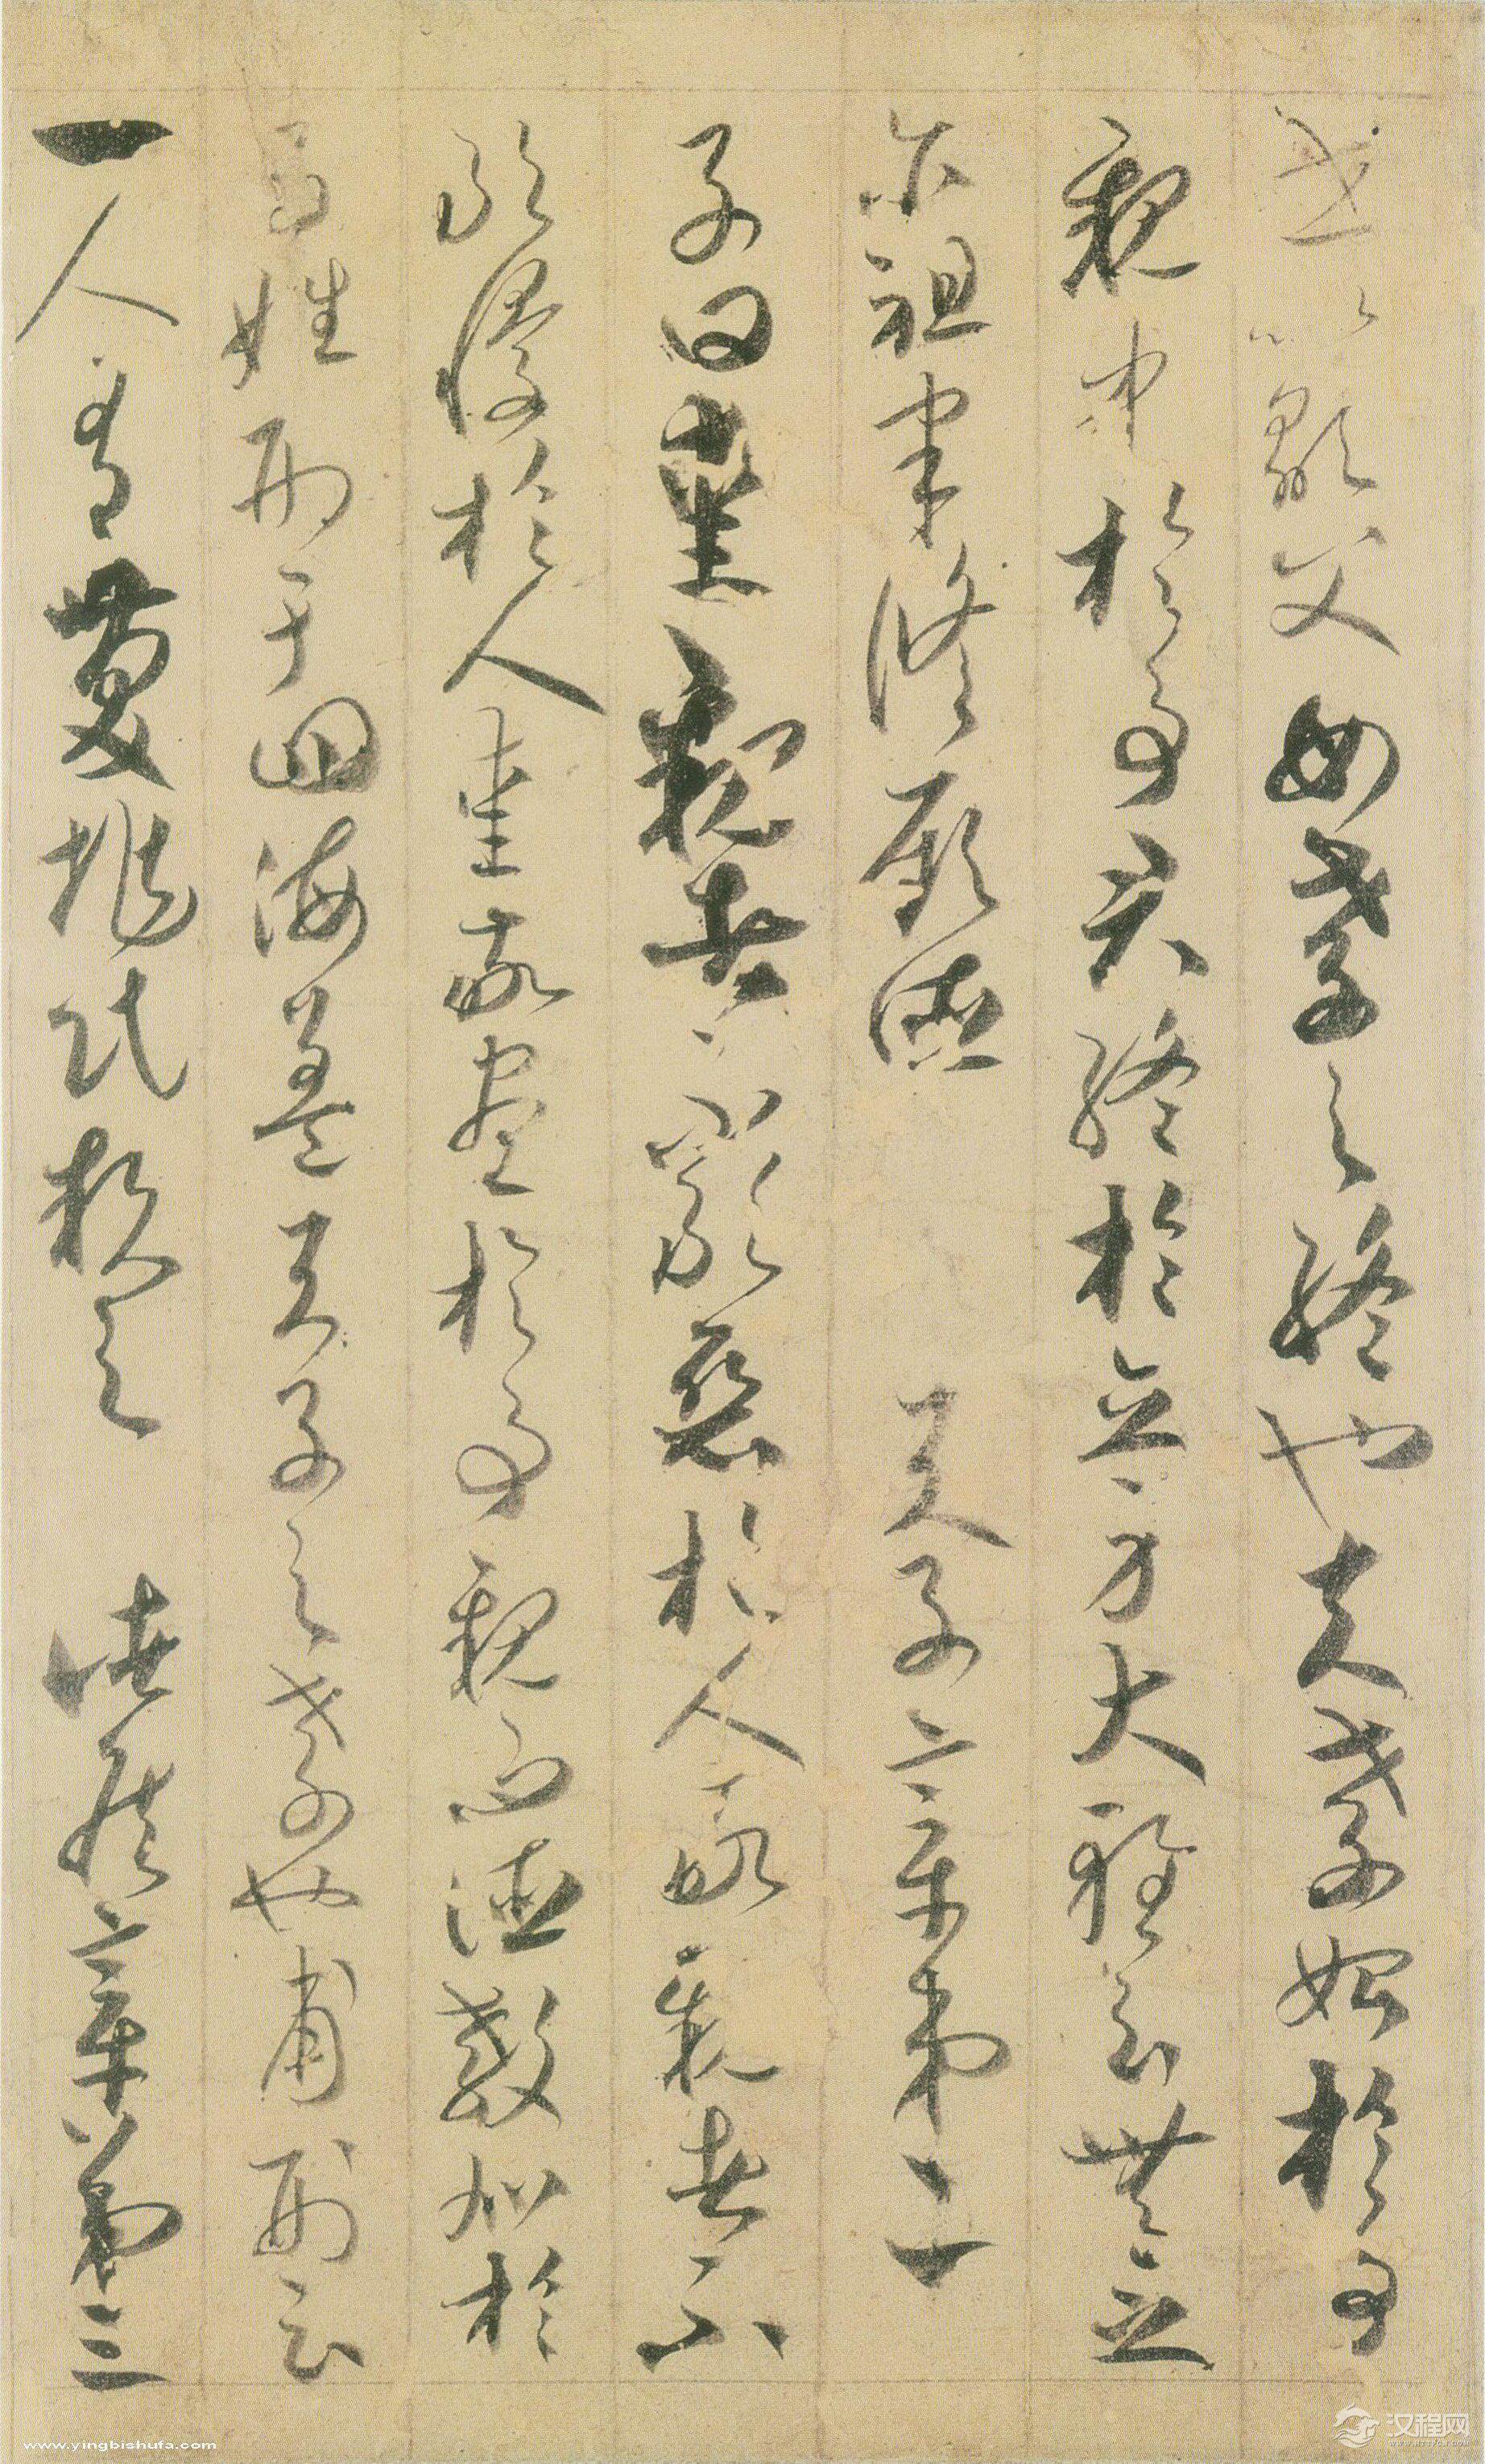 世以顯父母孝之終也夫孝始於事
親中於事君終於立身大雅云無念
尔祖聿脩厥德 天子章第二
子曰愛親者不敢惡於人敬親者不
敢慢於人愛敬盡於事親而德教加於
百姓刑于四海蓋天子之孝也甫刑云
一人有慶兆民賴之 諸侯章第三
www.yingbishufa.com
汉程网